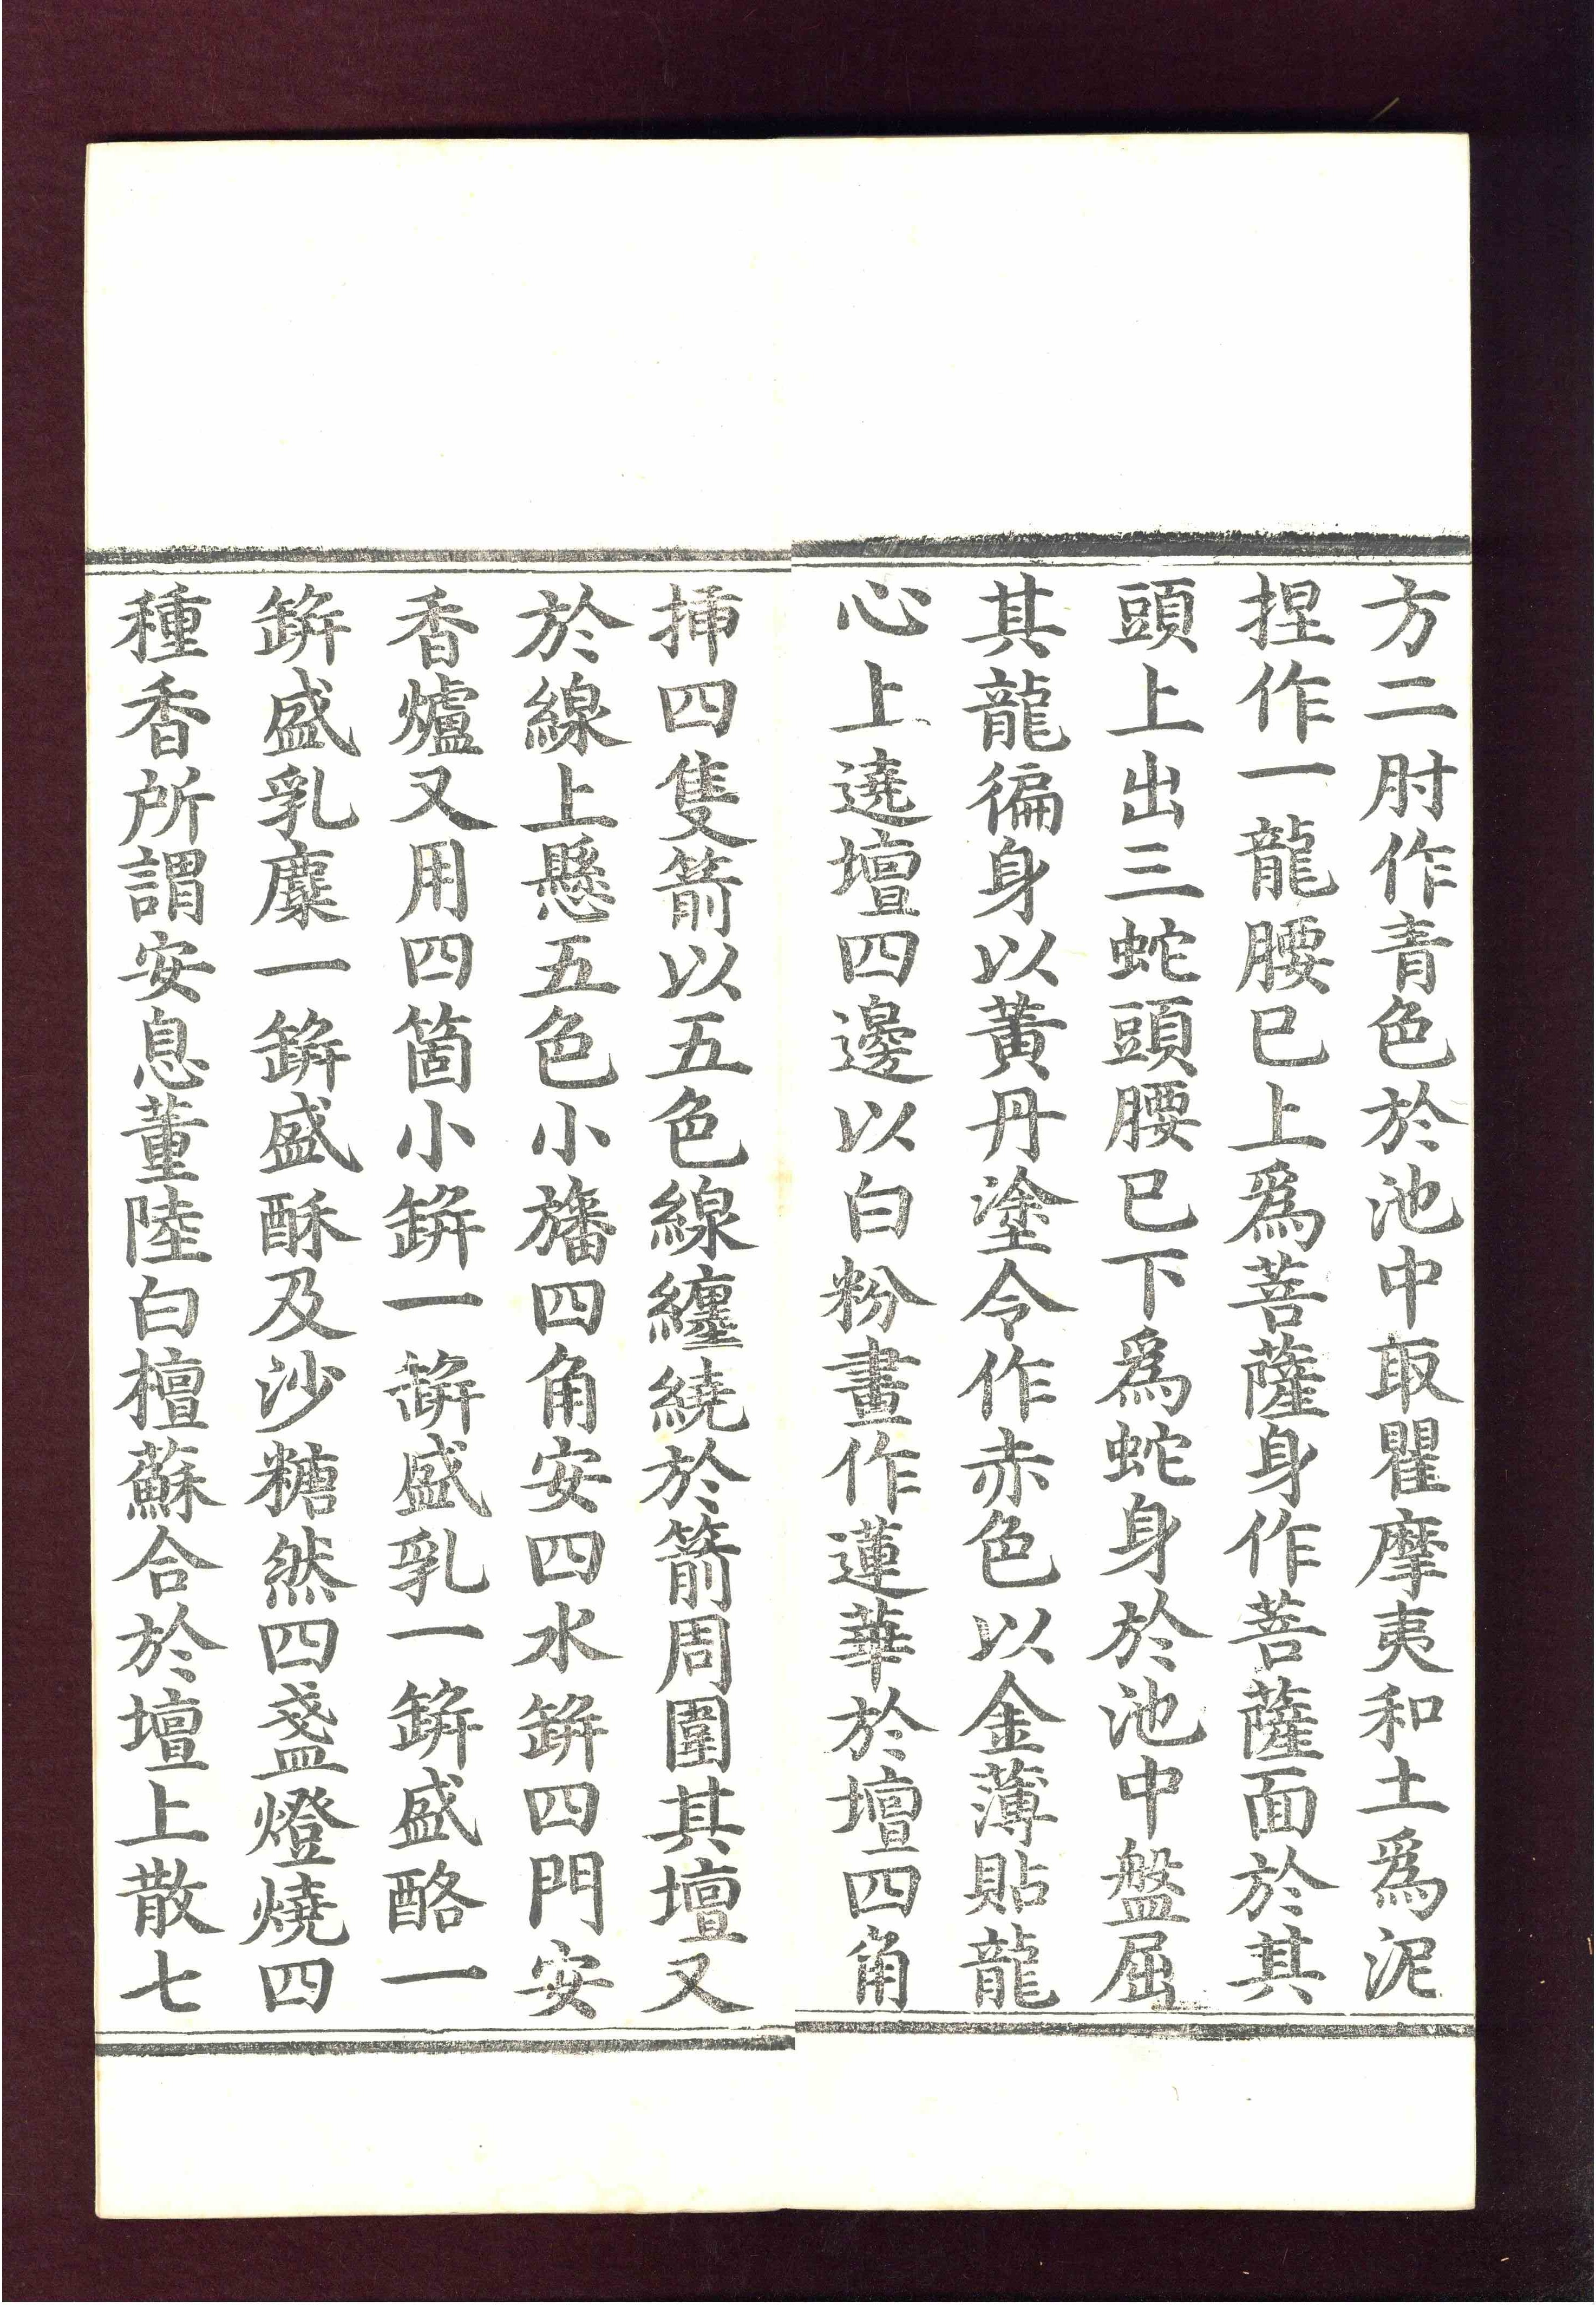 方二肘作青色於池中取瞿摩夷和土爲泥
捏作一龍腰已上爲菩薩身作菩薩面於其
頭上出三蛇頭腰已下爲蛇身於池中盤屈
其龍徧身以黃丹塗令作赤色以金薄貼龍
心上遶壇四邊以白粉畫作蓮華於壇四角
挿四隻箭以五色線纏繞於箭周圍其壇又
於線上懸五色小旛四角安四水缾四門安
香爐又用四箇小缾一缾盛乳一缾盛酪一
缾盛乳麋一缾盛酥及沙糖然四盞燈燒四
種香所謂安息董陸白檀蘇合於壇上散七